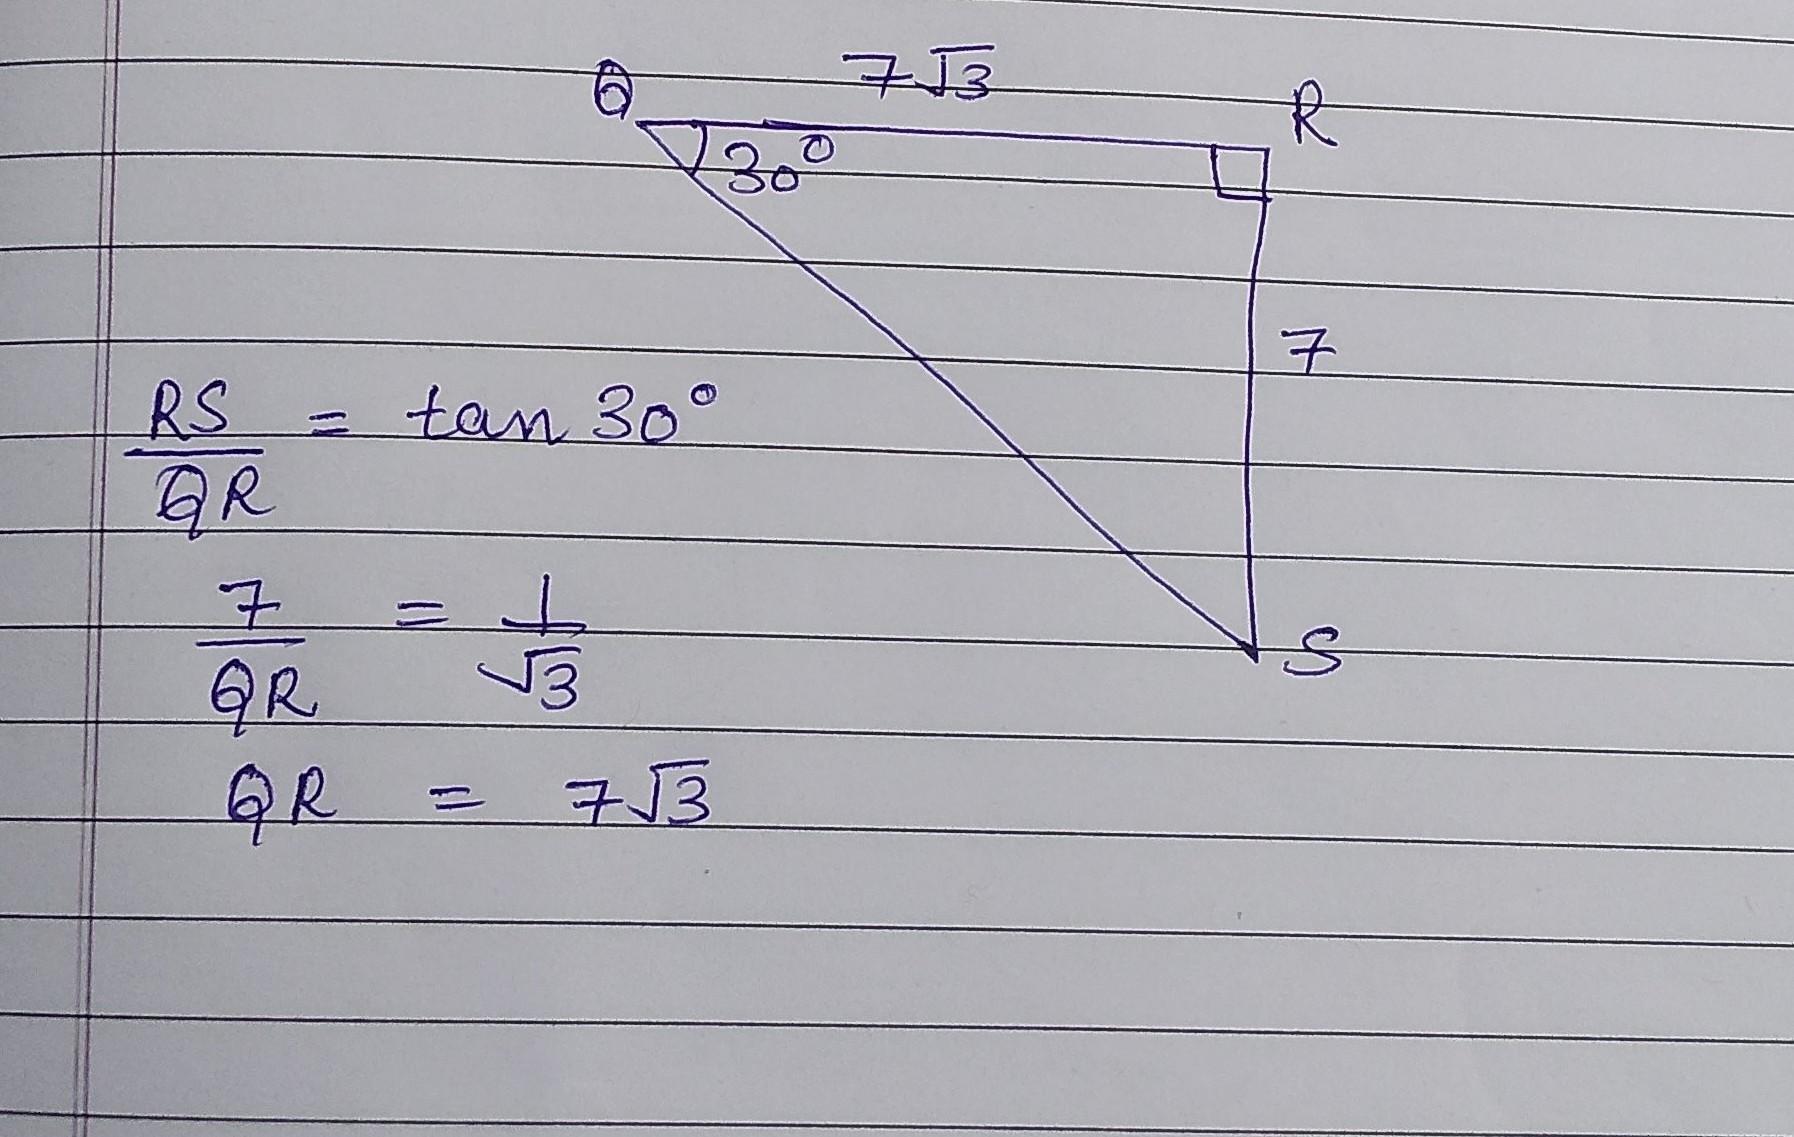 7√3
Q R
30°
7
S
RS/QR = tan 30°
7/QR = 1/√3
QR = 7√3